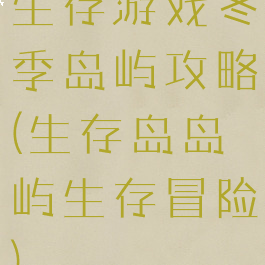 生存游戏冬
季岛屿攻略
(生存岛岛
屿生存冒险
)